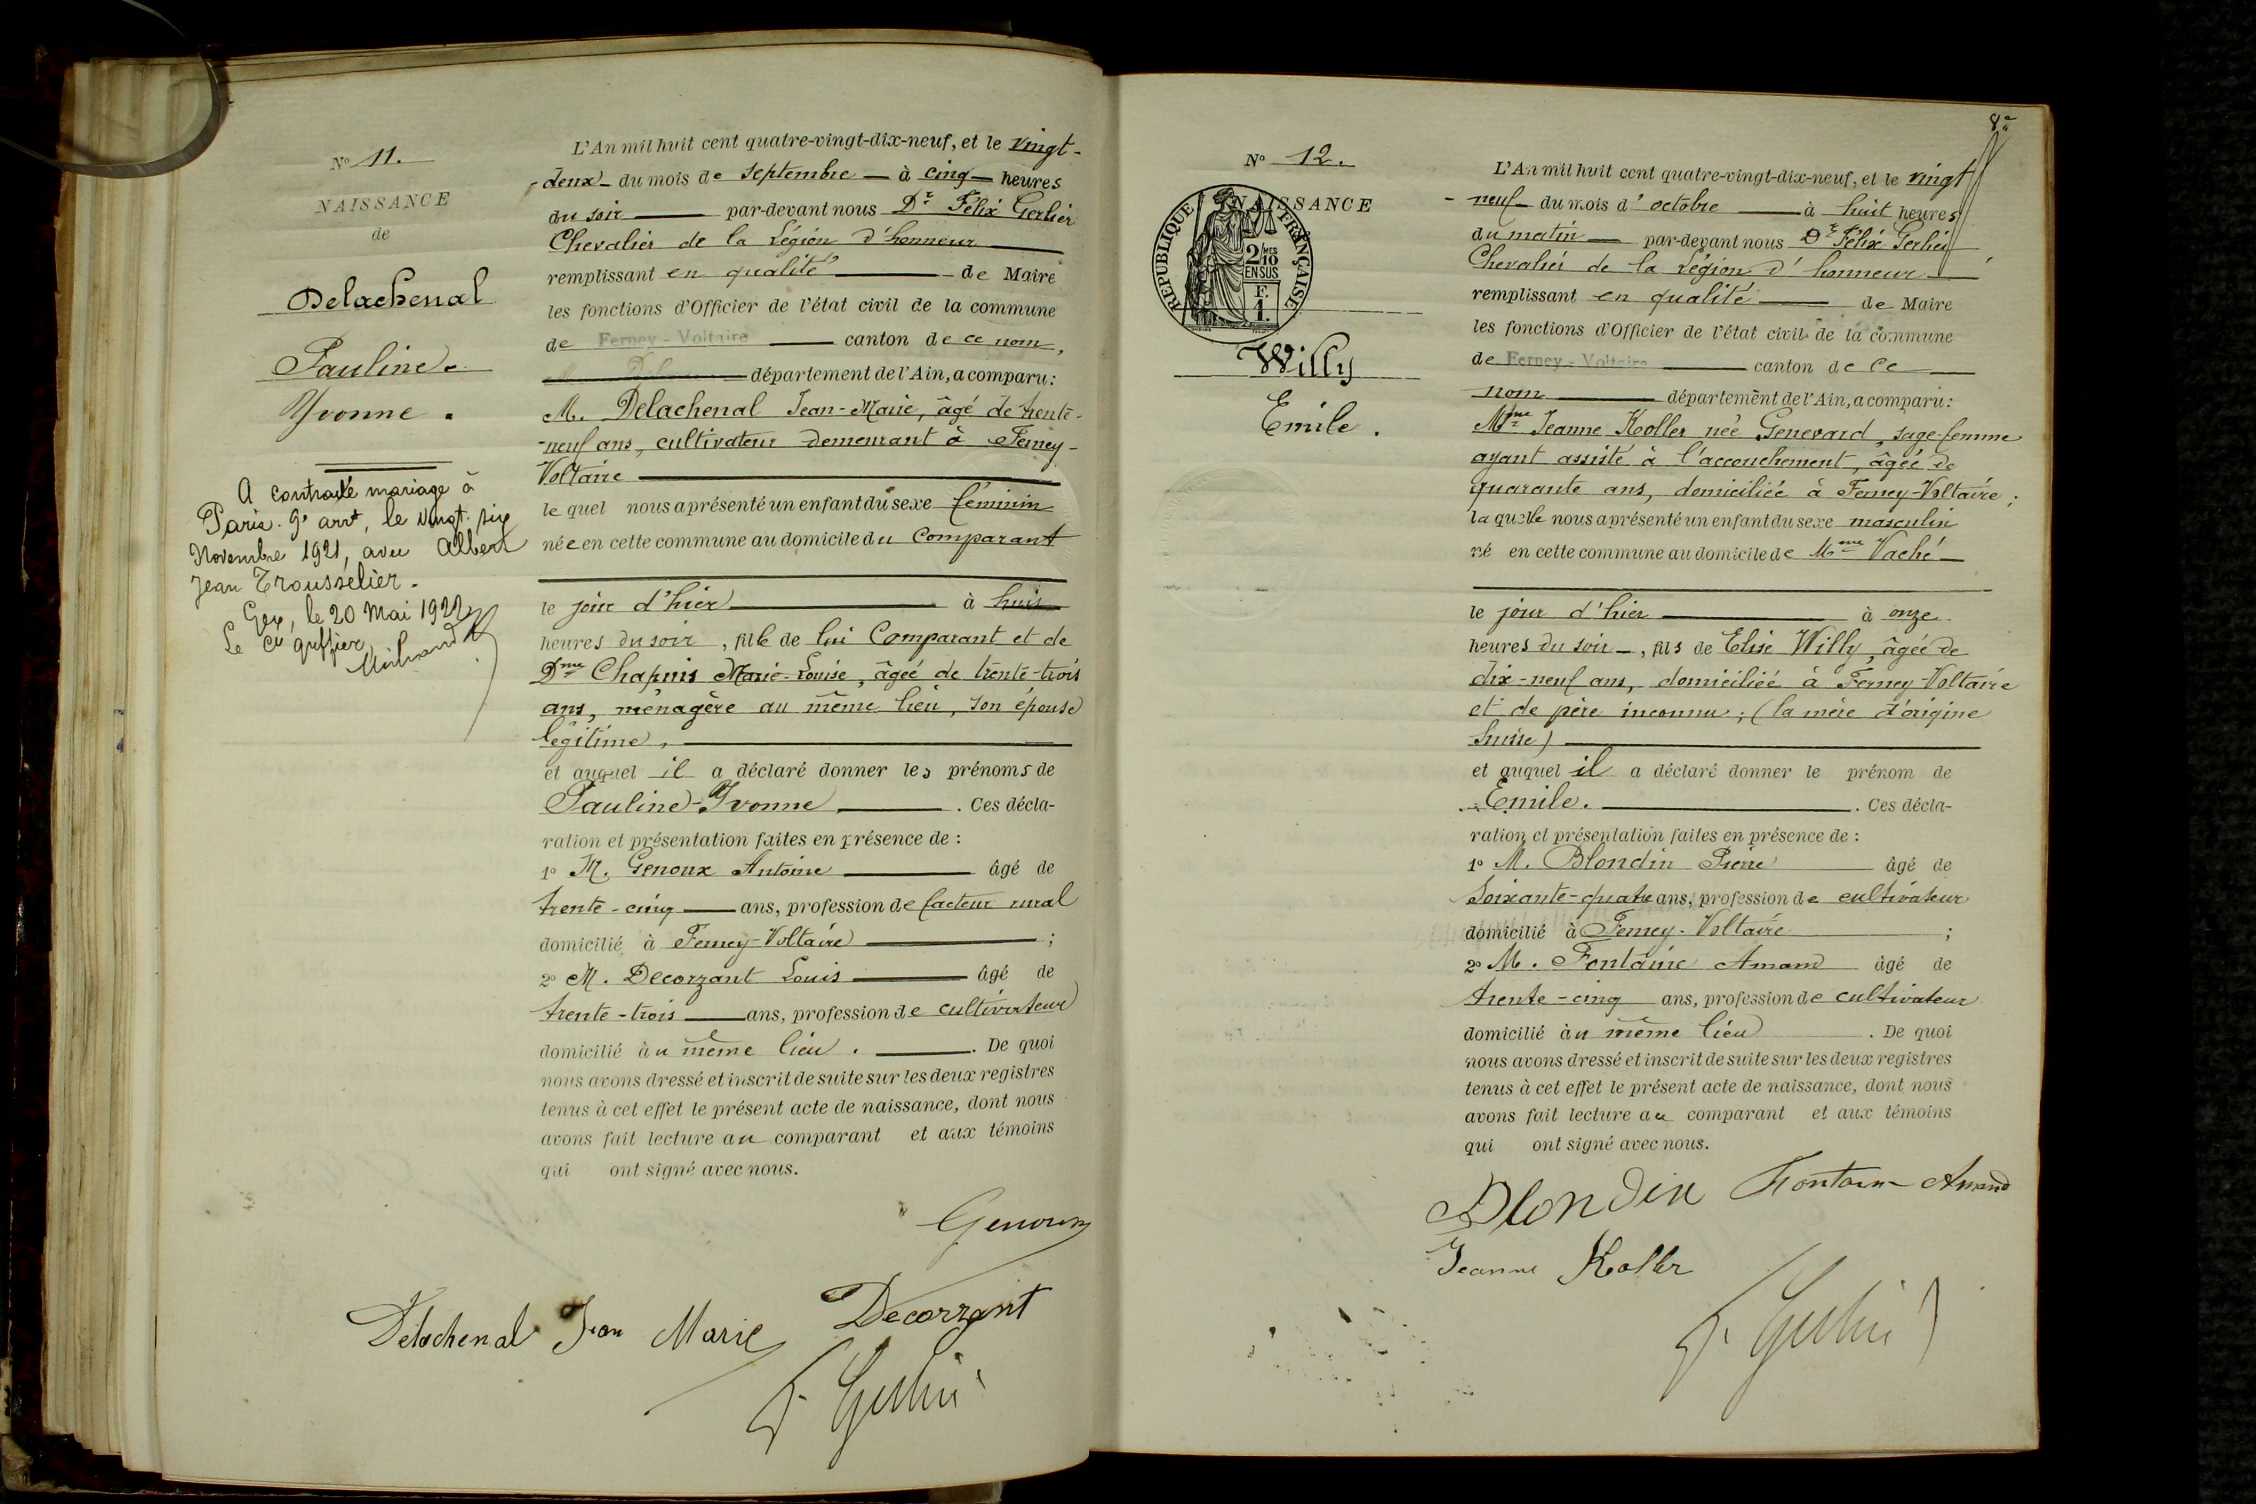 N° 11.
NAISSANCE
de
Delachenal
Pauline.
Yvonne.
A contracté mariage à
Paris. 9e arrt, le vingt-six
Novembre 1921, avec Albert
Jean Trousselier.
Gex, le 20 Mai 1922
Le Cis greffier,
L'An mil huit cent quatre-vingt-dix-neuf, et le vingt-
-deux - du mois de septembre — à cinq — heures
du soir — par-devant nous Dr Félix Gerlier
Chevalier de la Légion d'honneur
remplissant en qualité — de Maire
les fonctions d'Officier de l'état civil de la commune
de Ferney-Voltaire — canton de ce nom,
— département de l'Ain, a comparu:
M. Delachenal Jean-Marie, âgé de trente-
-neuf ans, cultivateur demeurant à Ferney-
Voltaire
le quel nous a présenté un enfant du sexe féminin
née en cette commune au domicile du Comparant
le jour d'hier — à huit
heures du soir, fille de lui Comparant et de
Dme Chapuis Marie-Louise, âgée de trente-trois
ans, ménagère au même lieu, son épouse
légitime,
et auquel il a déclaré donner les prénoms de
Pauline-Yvonne — . Ces décla-
ration et présentation faites en présence de :
1° M. Genoux Antoine — âgé de
trente-cinq — ans, profession de facteur rural
domicilié à Ferney-Voltaire — ;
2° M. Decorzant Louis — âgé de
trente-trois — ans, profession de cultivateur
domicilié au même lieu. — . De quoi
nous avons dressé et inscrit de suite sur les deux registres
tenus à cet effet le présent acte de naissance, dont nous
avons fait lecture au comparant et aux témoins
qui ont signé avec nous.
Genoux
Delachenal Jean Marie Decorzant
F. Gerlier
8e
N° 12.
NAISSANCE
RÉPUBLIQUE FRANÇAISE
2/10 EN SUS
F. 1.
Willy
Emile.
L'An mil huit cent quatre-vingt-dix-neuf, et le vingt
-neuf - du mois d'octobre — à huit heures
du matin — par-devant nous Dr Félix Gerlier
Chevalier de la Légion d'honneur
remplissant en qualité — de Maire
les fonctions d'Officier de l'état civil de la commune
de Ferney-Voltaire — canton de ce
nom — département de l'Ain, a comparu:
Mme Jeanne Koller née Genevard, sage-femme
ayant assisté à l'accouchement, âgée de
quarante ans, domiciliée à Ferney-Voltaire;
la quelle nous a présenté un enfant du sexe masculin
né en cette commune au domicile de Mme Vaché
le jour d'hier — à onze
heures du soir —, fils de Elise Willy, âgée de
dix-neuf ans, domiciliée à Ferney-Voltaire
et de père inconnu; (la mère d'origine
Suisse)
et auquel il a déclaré donner le prénom de
Emile. — . Ces décla-
ration et présentation faites en présence de :
1° M. Blondin Pierre âgé de
soixante-quatre ans, profession de cultivateur
domicilié à Ferney-Voltaire ;
2° M. Fontaine Amand âgé de
trente-cinq ans, profession de cultivateur
domicilié au même lieu . De quoi
nous avons dressé et inscrit de suite sur les deux registres
tenus à cet effet le présent acte de naissance, dont nous
avons fait lecture au comparant et aux témoins
qui ont signé avec nous.
Blondin Fontaine Amand
Jeanne Koller
F. Gerlier